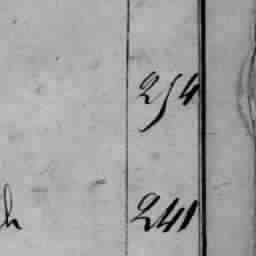 254
h 241